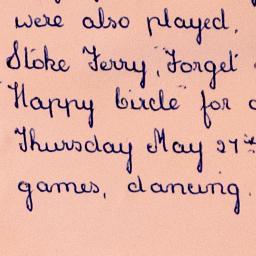 were also played.
Stoke Ferry, "Forget
"Happy Circle" for
Thursday May 27th
games, dancing.